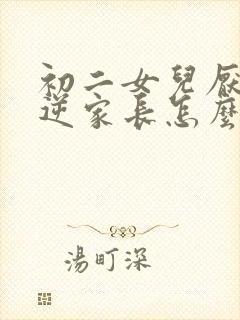 初二女兒厭
逆家長怎麼
湯町深